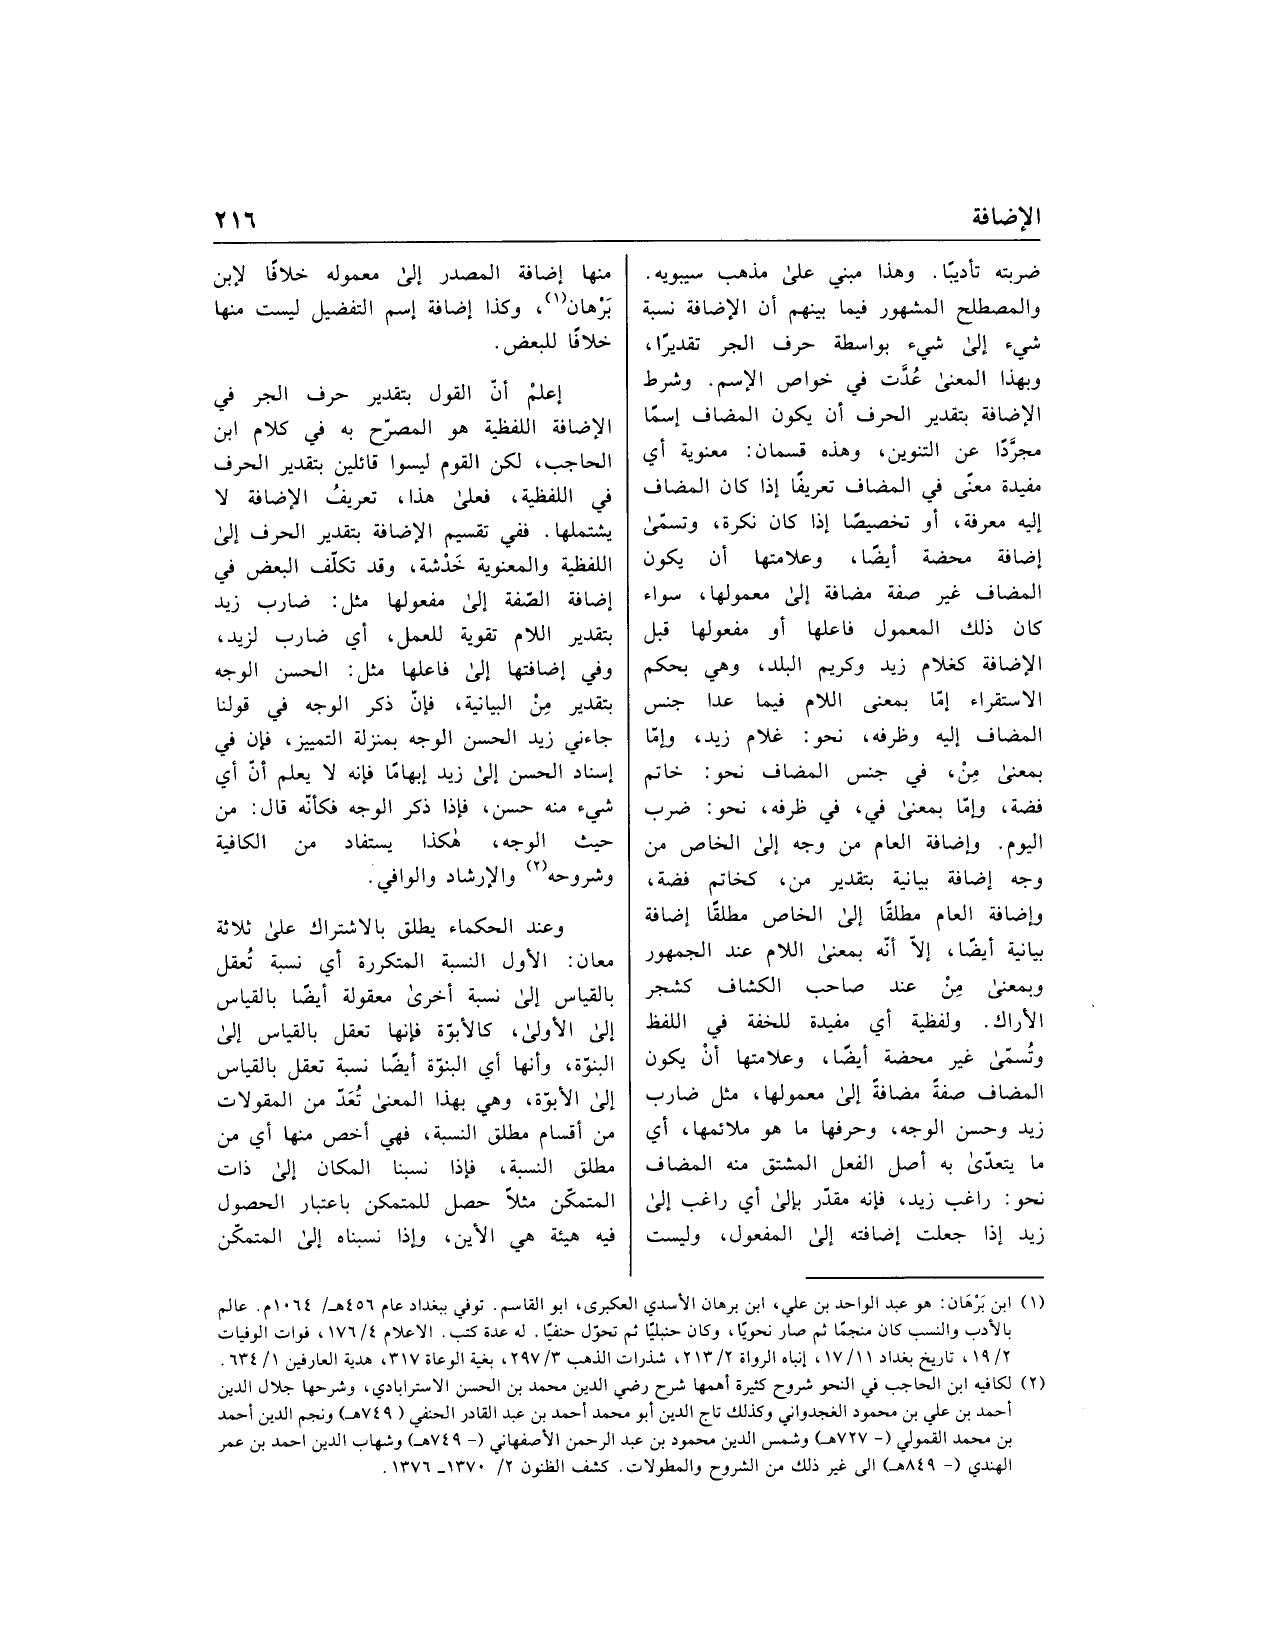 الإضافة
٢١٦
ضربته تأديبًا. وهذا مبني علىٰ مذهب سيبويه.
والمصطلح المشهور فيما بينهم أن الإضافة نسبة
شيء إلىٰ شيء بواسطة حرف الجر تقديرًا،
وبهذا المعنىٰ عُدَّت في خواص الإسم. وشرط
الإضافة بتقدير الحرف أن يكون المضاف إسمًا
مجرَّدًا عن التنوين، وهذه قسمان: معنوية أي
مفيدة معنًى في المضاف تعريفًا إذا كان المضاف
إليه معرفة، أو تخصيصًا إذا كان نكرة، وتسمّىٰ
إضافة محضة أيضًا، وعلامتها أن يكون
المضاف غير صفة مضافة إلىٰ معمولها، سواء
كان ذلك المعمول فاعلها أو مفعولها قبل
الإضافة كغلام زيد وكريم البلد، وهي بحكم
الاستقراء إمّا بمعنى اللام فيما عدا جنس
المضاف إليه وظرفه، نحو: غلام زيد، وإمّا
بمعنىٰ مِنْ، في جنس المضاف نحو: خاتم
فضة، وإمّا بمعنىٰ في، في ظرفه، نحو: ضرب
اليوم. وإضافة العام من وجه إلىٰ الخاص من
وجه إضافة بيانية بتقدير من، كخاتم فضة،
وإضافة العام مطلقًا إلىٰ الخاص مطلقًا إضافة
بيانية أيضًا، إلاّ أنّه بمعنىٰ اللام عند الجمهور
وبمعنىٰ مِنْ عند صاحب الكشاف كشجر
الأراك. ولفظية أي مفيدة للخفة في اللفظ
وتُسمّىٰ غير محضة أيضًا، وعلامتها أنْ يكون
المضاف صفةً مضافةً إلىٰ معمولها، مثل ضارب
زيد وحسن الوجه، وحرفها ما هو ملائمها، أي
ما يتعدّىٰ به أصل الفعل المشتق منه المضاف
نحو: راغب زيد، فإنه مقدّر بإلىٰ أي راغب إلىٰ
زيد إذا جعلت إضافته إلىٰ المفعول، وليست
منها إضافة المصدر إلىٰ معموله خلافًا لإبن
بَرْهان(١)، وكذا إضافة إسم التفضيل ليست منها
خلافًا للبعض.
إعلمْ أنّ القول بتقدير حرف الجر في
الإضافة اللفظية هو المصرّح به في كلام ابن
الحاجب، لكن القوم ليسوا قائلين بتقدير الحرف
في اللفظية، فعلىٰ هذا، تعريفُ الإضافة لا
يشتملها. ففي تقسيم الإضافة بتقدير الحرف إلىٰ
اللفظية والمعنوية خَدْشة، وقد تكلّف البعض في
إضافة الصّفة إلىٰ مفعولها مثل: ضارب زيد
بتقدير اللام تقوية للعمل، أي ضارب لزيد،
وفي إضافتها إلىٰ فاعلها مثل: الحسن الوجه
بتقدير مِنْ البيانية، فإنّ ذكر الوجه في قولنا
جاءني زيد الحسن الوجه بمنزلة التمييز، فإن في
إسناد الحسن إلىٰ زيد إبهامًا فإنه لا يعلم أنّ أي
شيء منه حسن، فإذا ذكر الوجه فكأنّه قال: من
حيث الوجه، هٰكذا يستفاد من الكافية
وشروحه(٢) والإرشاد والوافي.
وعند الحكماء يطلق بالاشتراك علىٰ ثلاثة
معان: الأول النسبة المتكررة أي نسبة تُعقل
بالقياس إلىٰ نسبة أخرىٰ معقولة أيضًا بالقياس
إلىٰ الأولىٰ، كالأبوّة فإنها تعقل بالقياس إلىٰ
البنوّة، وأنها أي البنوّة أيضًا نسبة تعقل بالقياس
إلىٰ الأبوّة، وهي بهذا المعنىٰ تُعَدّ من المقولات
من أقسام مطلق النسبة، فهي أخص منها أي من
مطلق النسبة، فإذا نسبنا المكان إلىٰ ذات
المتمكّن مثلاً حصل للمتمكن باعتبار الحصول
فيه هيئة هي الأين، وإذا نسبناه إلىٰ المتمكّن
(١) ابن بَرْهَان: هو عبد الواحد بن علي، ابن برهان الأسدي العكبرى، ابو القاسم. توفي ببغداد عام ٤٥٦هـ/ ١٠٦٤م. عالم
بالأدب والنسب كان منجمًا ثم صار نحويًا، وكان حنبليًا ثم تحوّل حنفيًا. له عدة كتب. الاعلام ٤/ ١٧٦، فوات الوفيات
٢/ ١٩، تاريخ بغداد ١١/ ١٧، إنباه الرواة ٢/ ٢١٣، شذرات الذهب ٣/ ٢٩٧، بغية الوعاة ٣١٧، هدية العارفين ١/ ٦٣٤.
(٢) لكافيه ابن الحاجب في النحو شروح كثيرة أهمها شرح رضي الدين محمد بن الحسن الاسترابادي، وشرحها جلال الدين
أحمد بن علي بن محمود الغجدواني وكذلك تاج الدين أبو محمد أحمد بن عبد القادر الحنفي ( ٧٤٩هـ) ونجم الدين أحمد
بن محمد القمولي (- ٧٢٧هـ) وشمس الدين محمود بن عبد الرحمن الأصفهاني (- ٧٤٩هـ) وشهاب الدين احمد بن عمر
الهندي (- ٨٤٩هـ) الى غير ذلك من الشروح والمطولات. كشف الظنون ٢/ ١٣٧٠ـ ١٣٧٦.